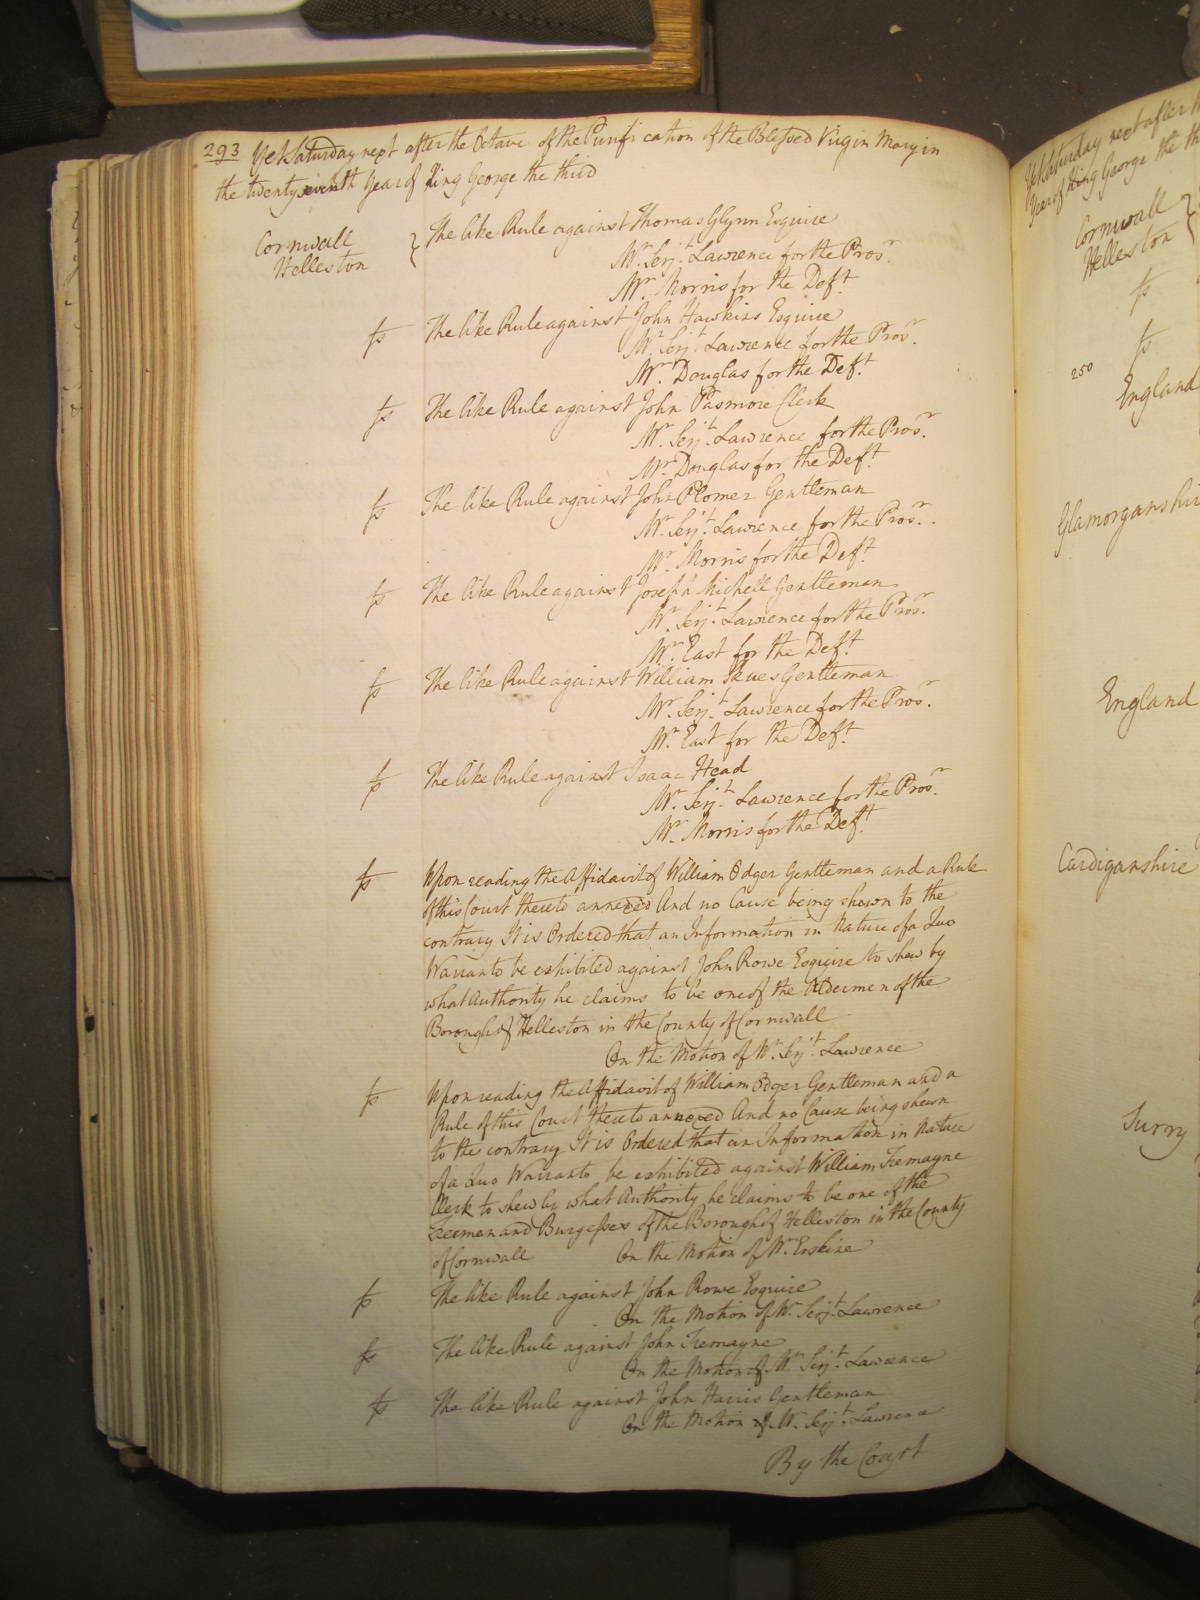 293 Yet Saturday next after the Octave of the Purification of the Blessed Virgin Mary in
the twenty seventh Year of King George the third
Cornwall
Helleston
The like Rule against Thomas Glynn Esquire
Mr. Serjt. Lawrence for the Prosr.
Mr. Morris for the Deft.
fs The like Rule against John Hawkins Esquire
Mr. Serjt. Lawrence for the Prosr.
Mr. Douglas for the Deft.
fs The like Rule against John Pasmore Clerk
Mr. Serjt. Lawrence for the Prosr.
Mr. Douglas for the Deft.
fs The like Rule against John Plomer Gentleman
Mr. Serjt. Lawrence for the Prosr.
Mr. Morris for the Deft.
fs The like Rule against Joseph Michell Gentleman
Mr. Serjt. Lawrence for the Prosr.
Mr. East for the Deft.
fs The like Rule against William Skues Gentleman
Mr. Serjt. Lawrence for the Prosr.
Mr. East for the Deft.
fs The like Rule against Isaac Head
Mr. Serjt. Lawrence for the Prosr.
Mr. Morris for the Deft.
fs Upon reading the Affidavit of William Odger Gentleman and a Rule
of this Court thereto annexed And no Cause being shewn to the
contrary It is Ordered that an Information in Nature of a Quo
Warranto be exhibited against John Rowe Esquire to shew by
what Authority he claims to be one of the Aldermen of the
Borough of Helleston in the County of Cornwall
On the Motion of Mr. Serjt. Lawrence
fs Upon reading the Affidavit of William Odger Gentleman and a
Rule of this Court thereto annexed And no Cause being shewn
to the contrary It is Ordered that an Information in Nature
of a Quo Warranto be exhibited against William Tremayne
Clerk to shew by what Authority he claims to be one of the
Freemen and Burgesses of the Borough of Helleston in the County
of Cornwall On the Motion of Mr. Erskine
fs The like Rule against John Rowe Esquire
On the Motion of Mr. Serjt. Lawrence
fs The like Rule against John Tremayne
On the Motion of Mr. Serjt. Lawrence
fs The like Rule against John Harris Gentleman
On the Motion of Mr. Serjt. Lawrence
By the Court
Yet Saturday next after
Year of King George the
Cornwall
Helleston
fs
fs
250
England
Glamorganshi
England
Cardiganshire
Surry